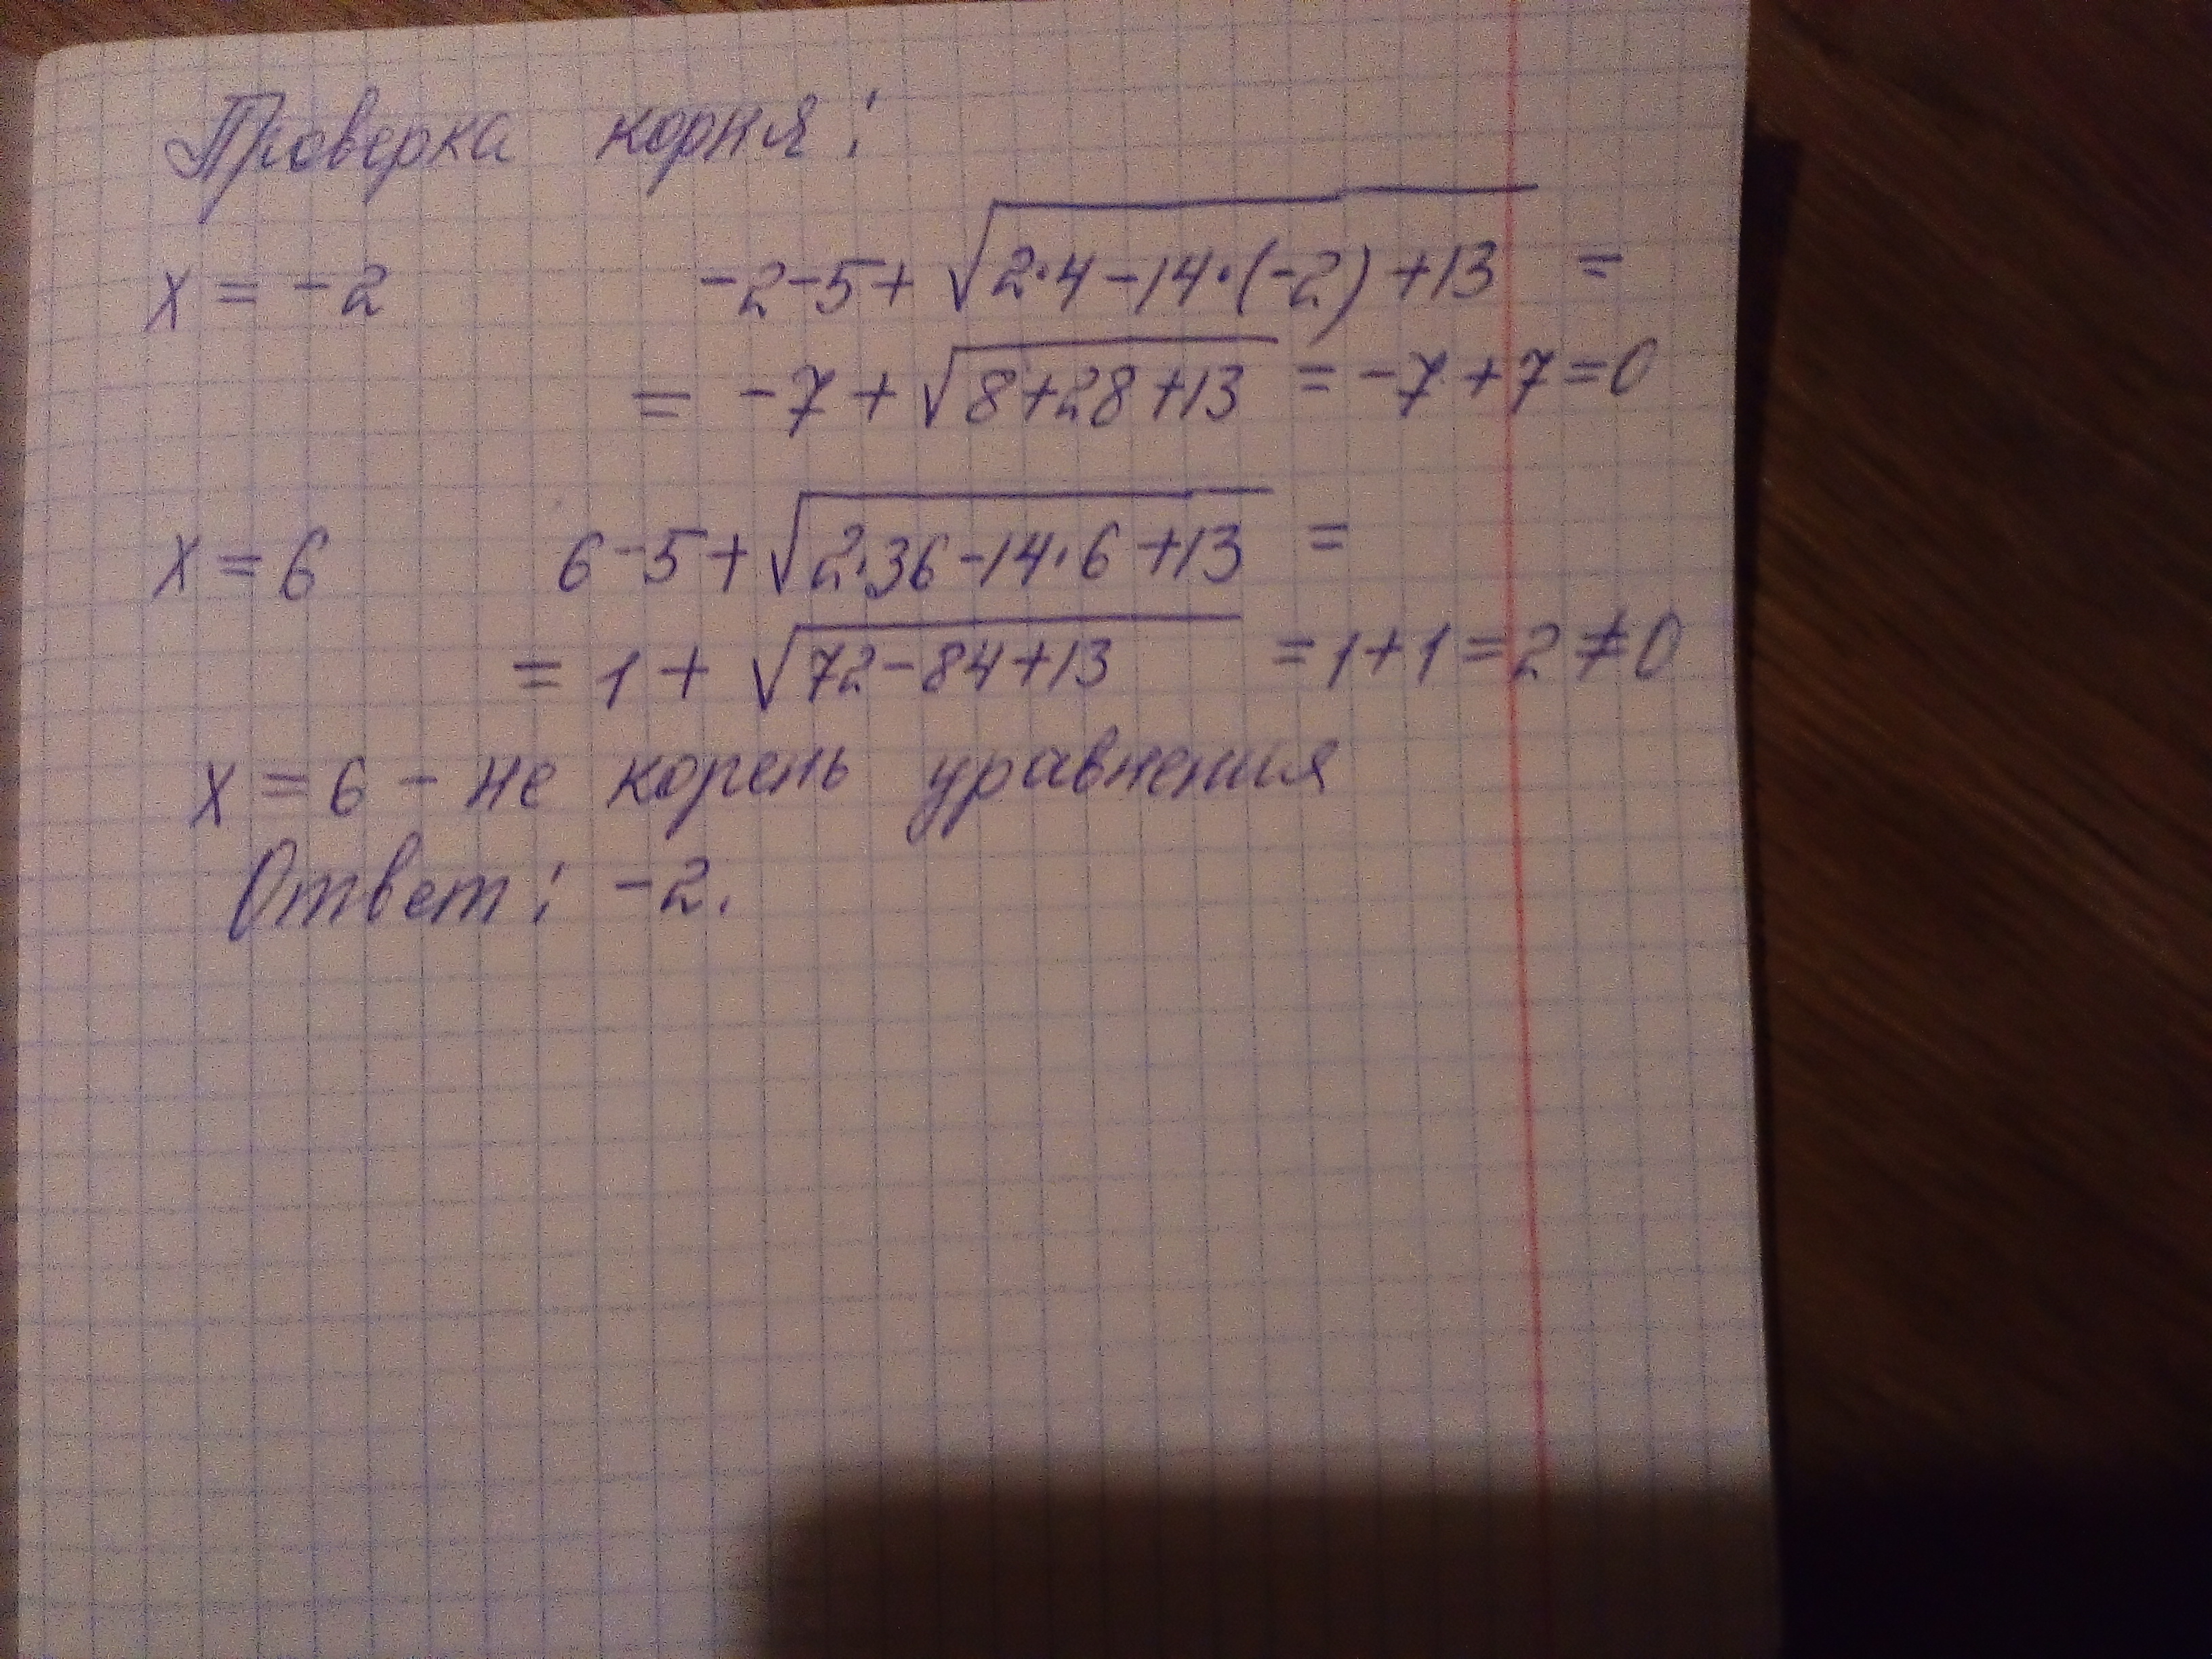 Проверка корня:
x = -2    -2-5+√(2·4-14·(-2)+13) =
= -7+√(8+28+13) = -7+7=0
x = 6    6-5+√(2·36-14·6+13) =
= 1+√(72-84+13) = 1+1=2≠0
x = 6 - не корень уравнения
Ответ: -2.